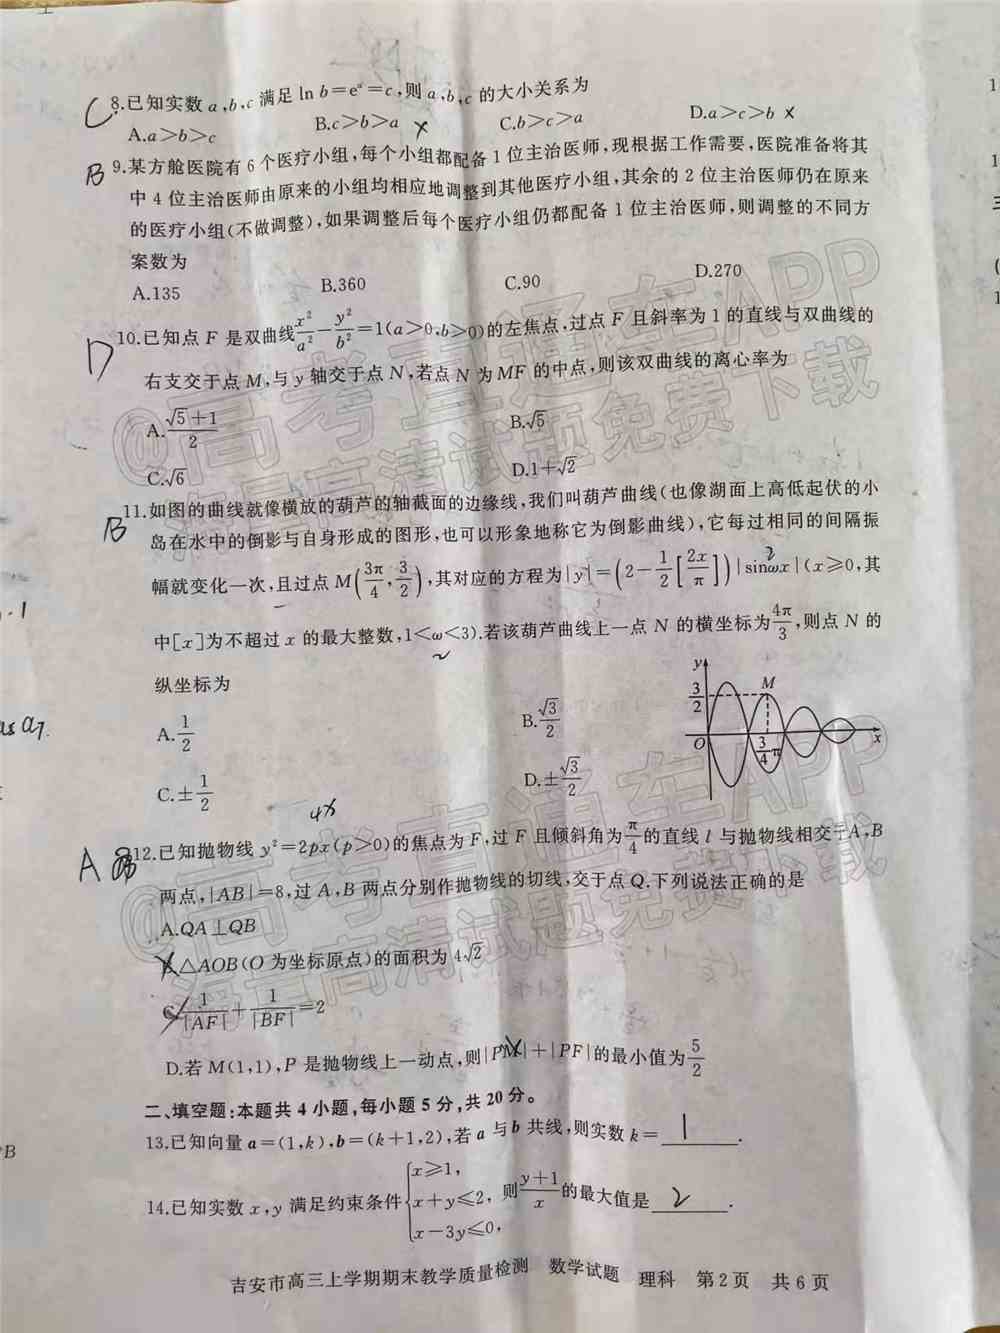 C
8.已知实数 a,b,c 满足 ln b=eᵃ=c,则 a,b,c 的大小关系为
A.a>b>c B.c>b>a x C.b>c>a D.a>c>b x
B
9.某方舱医院有 6 个医疗小组,每个小组都配备 1 位主治医师,现根据工作需要,医院准备将其
中 4 位主治医师由原来的小组均相应地调整到其他医疗小组,其余的 2 位主治医师仍在原来
的医疗小组(不做调整),如果调整后每个医疗小组仍都配备 1 位主治医师,则调整的不同方
案数为
A.135 B.360 C.90 D.270
D
10.已知点 F 是双曲线 x²/a² − y²/b² =1(a>0,b>0)的左焦点,过点 F 且斜率为 1 的直线与双曲线的
右支交于点 M,与 y 轴交于点 N,若点 N 为 MF 的中点,则该双曲线的离心率为
A.(√5+1)/2 B.√5
C.√6 D.1+√2
B
11.如图的曲线就像横放的葫芦的轴截面的边缘线,我们叫葫芦曲线(也像湖面上高低起伏的小
岛在水中的倒影与自身形成的图形,也可以形象地称它为倒影曲线),它每过相同的间隔振
幅就变化一次,且过点 M(3π/4, 3/2),其对应的方程为|y|=(2−1/2[2x/π])|sinωx|(x≥0,其
2
中[x]为不超过 x 的最大整数,1<ω<3).若该葫芦曲线上一点 N 的横坐标为4π/3,则点 N 的
纵坐标为
A.1/2 B.√3/2
C.±1/2 D.±√3/2
y
3/2
M
O 3/4 π x
A
12.已知抛物线 y²=2px(p>0)的焦点为 F,过 F 且倾斜角为π/4的直线 l 与抛物线相交于 A,B
两点,|AB|=8,过 A,B 两点分别作抛物线的切线,交于点 Q.下列说法正确的是
A.QA⊥QB
B.△AOB(O 为坐标原点)的面积为 4√2
C.1/|AF|+1/|BF|=2
D.若 M(1,1),P 是抛物线上一动点,则|PM|+|PF|的最小值为5/2
二、填空题:本题共 4 小题,每小题 5 分,共 20 分。
13.已知向量 a=(1,k),b=(k+1,2),若 a 与 b 共线,则实数 k= 1 .
14.已知实数 x,y 满足约束条件{x≥1, x+y≤2, x−3y≤0, 则(y+1)/x的最大值是 2 .
吉安市高三上学期期末教学质量检测 数学试题 理科 第 2 页 共 6 页
@高考直通车APP
海量高清试题免费下载
@高考直通车APP
海量高清试题免费下载